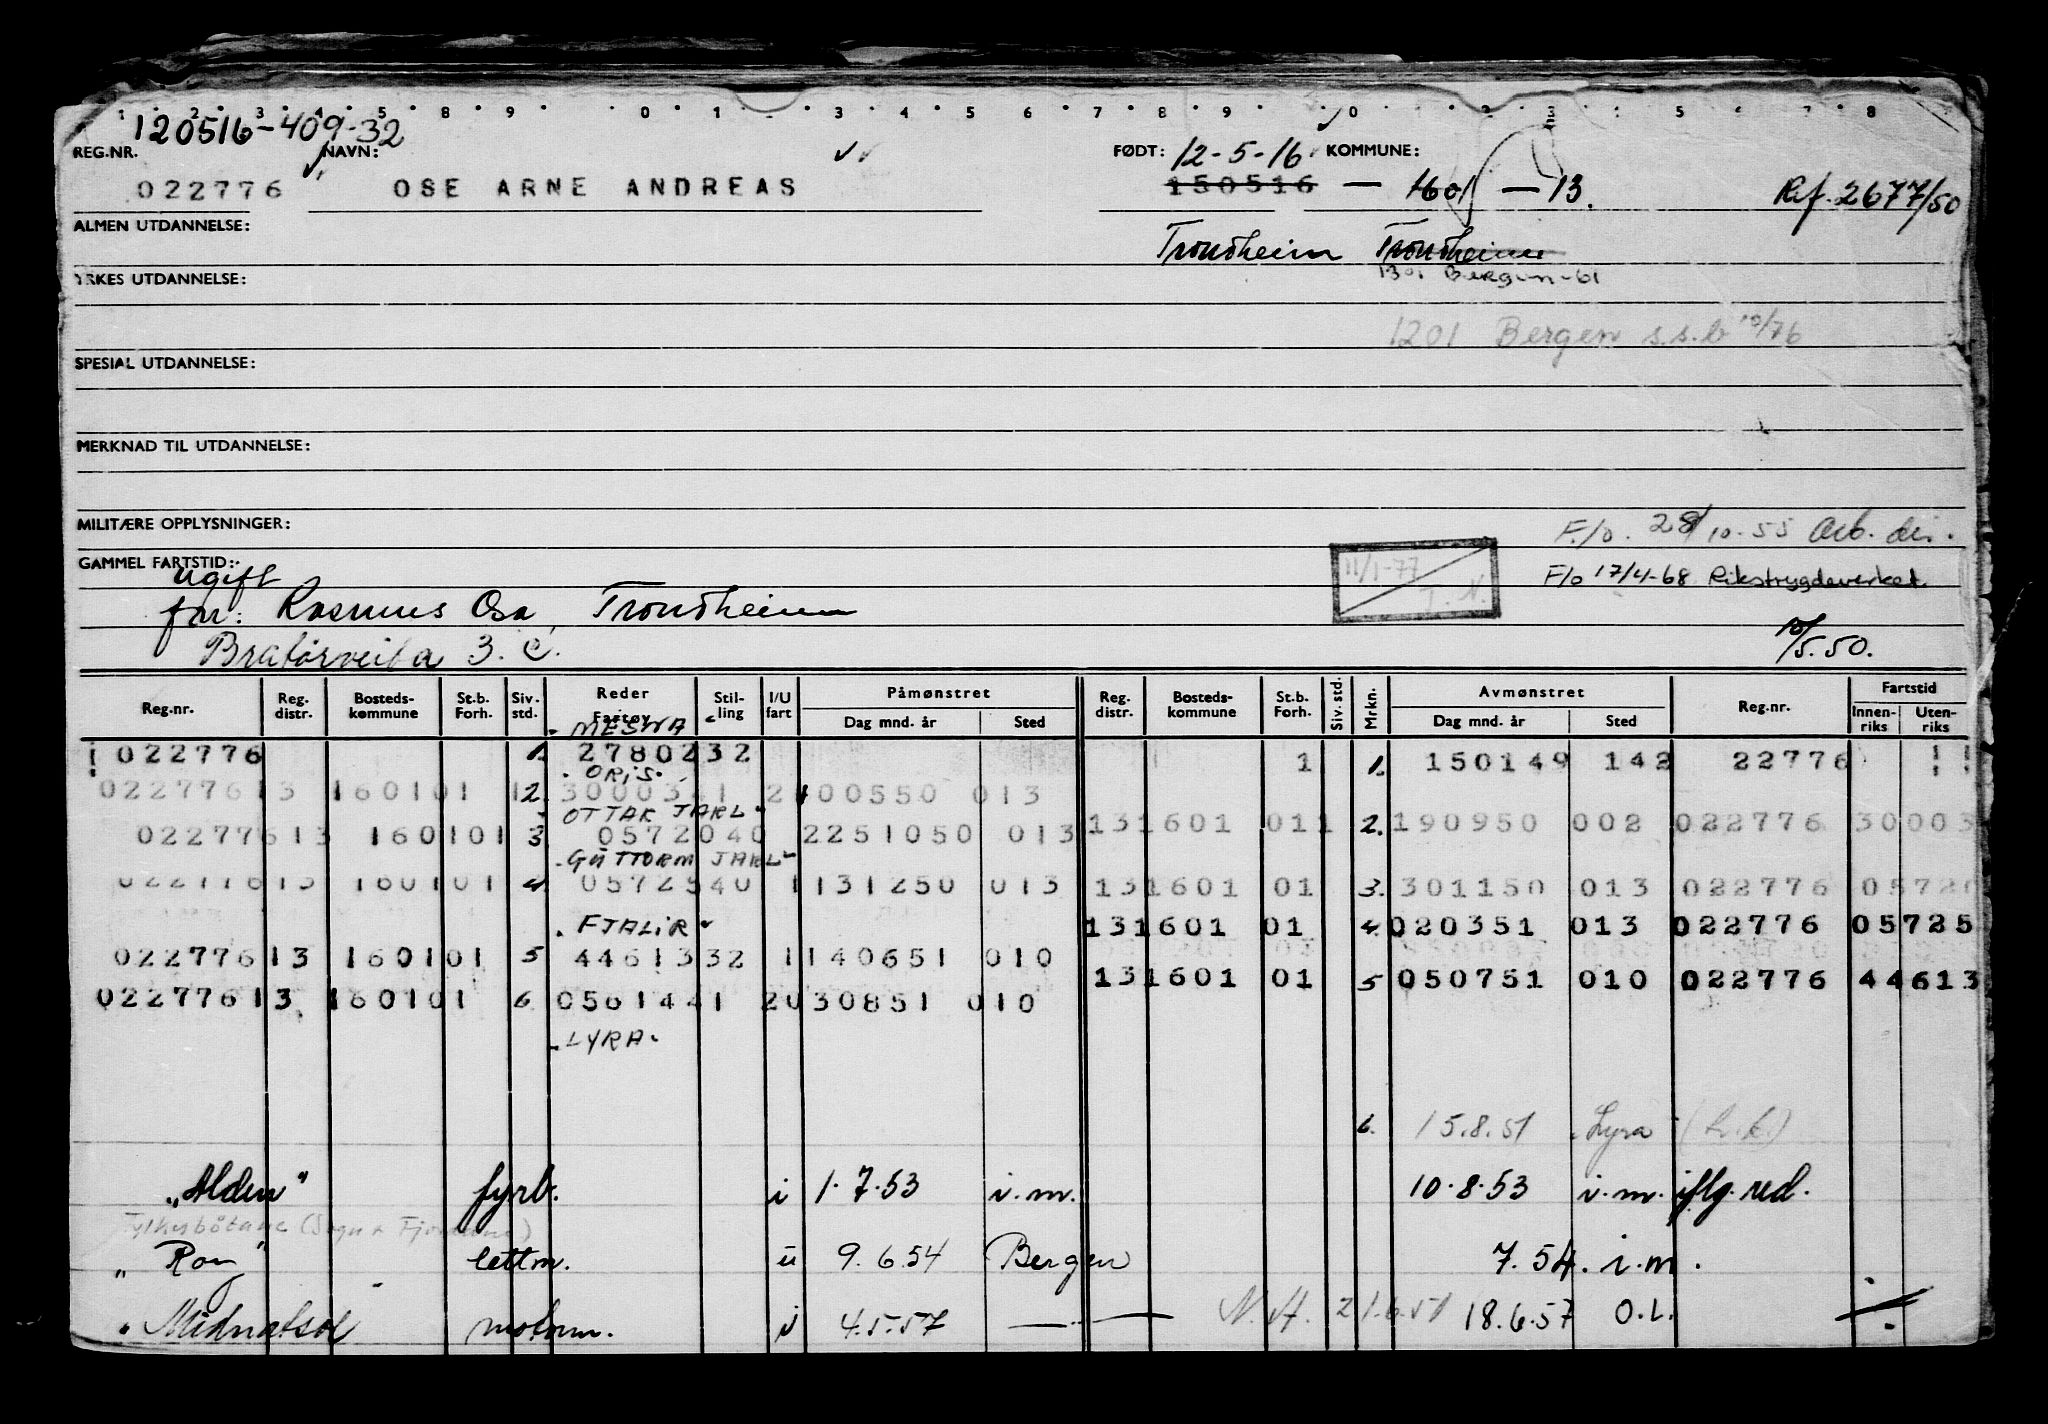 1 2 3 4 5 8 9 0 1 3 4 5 6 7 8 9 0 2 3 4 5 6 7 8
120516-409-32
REG.NR. NAVN: FØDT: 12-5-16 KOMMUNE:
022776 OSE ARNE ANDREAS 150516 — 1601 — 13. Ref. 2677/50
ALMEN UTDANNELSE: Trondheim Trondheim
YRKES UTDANNELSE: 1301 Bergen-61
1201 Bergen s.s.b 10/76
SPESIAL UTDANNELSE:
MERKNAD TIL UTDANNELSE:
MILITÆRE OPPLYSNINGER: F/o. 28/10-55 Arb. dir.
GAMMEL FARTSTID: 11/1-77 F/o 17/4-68 Rikstrygdeverket.
ugift J. N.
far: Rasmus Osa, Trondheim
Bratørveita 3. C. 10/5.50.
Reg.nr. Reg. distr. Bosteds- kommune St.b. Forh. Siv. std. Reder Fartøy Stil- ling I/U fart Påmønstret Dag mnd. år Sted Reg. distr. Bosteds- kommune St.b. Forh. Siv. std. Mrkn. Avmønstret Dag mnd. år Sted Reg.nr. Fartstid Innen- riks Uten- riks
MESNA
022776 1. 2780232 1 1. 150149 142 22776
ORIS.
02277613 160101 12. 3000341 2100550 013
OTTAR JARL
131601 011 2. 190950 002 022776 30003
02277613 160101 3 0572040 2251050 013
GUTTORM JARL
02277613 160101 4 0572540 1131250 013 131601 01 3. 301150 013 022776 05720
FJALIR
131601 01 4. 020351 013 022776 05725
02277613 160101 5 4461332 1140651 010
131601 01 5 050751 010 022776 44613
02277613 160101 6. 0561441 2030851 010
LYRA.
6. 15.8.51 Lyra
"Alden" fyrb. i 1.7.53 i.m. 10.8.53 i.m. iflg. red.
Fylkesbåtane (Sogn & Fjordane)
"Roy" lettm. u 9.6.54 Bergen 7.54. i.m.
Midnatsol motorm. i 4.5.57 — — N.A. 21.6.57 18.6.57 O.L.